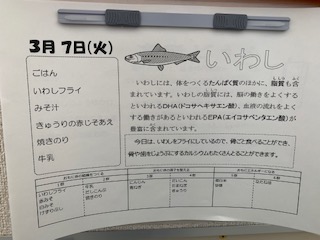 3月 7日(火)
ごはん
いわしフライ
みそ汁
きゅうりの赤じそあえ
焼きのり
牛乳
いわし
いわしには、体をつくるたんぱく質のほかに、脂質も含
まれています。いわしの脂質には、脳の働きをよくする
といわれるDHA(ドコサヘキサエン酸)、血液の流れをよく
する働きがあるといわれるEPA(エイコサペンタエン酸)が
豊富に含まれています。
今日は、いわしをフライにしているので、骨ごと食べることができ、
骨や歯をじょうぶにするカルシウムもたくさんとることができます。
いわしフライ
牛乳
焼きのり
にんじん
だいこん
たまねぎ
きゅうり